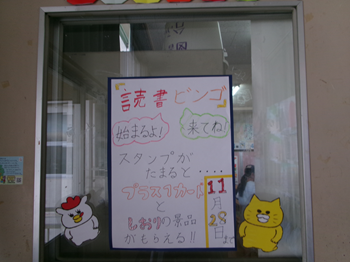 読書ビンゴ
始まるよ！
来てね！
スタンプが
たまると・・・・
プラス1カード
と
しおりの景品
がもらえる!!
11
月
28
日
まで